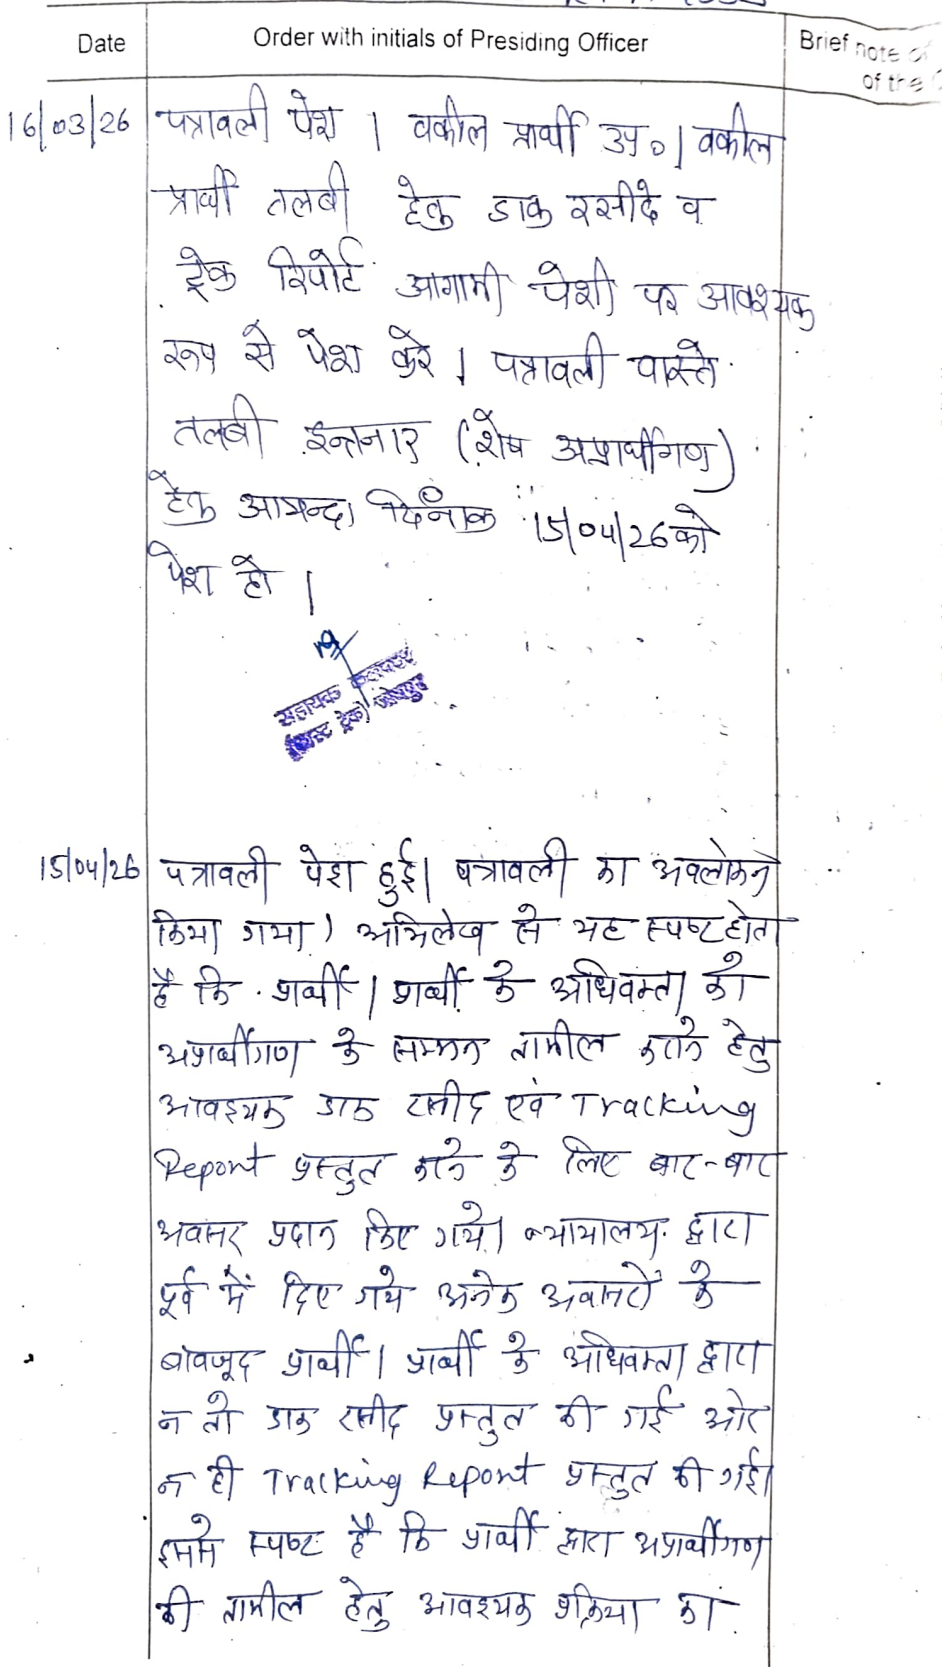 Date
Order with initials of Presiding Officer
Brief note of
of the
16/03/26
पत्रावली पेश । वकील प्रार्थी उप० । वकील
प्रार्थी तलबी हेतु डाक रसीदे व
ट्रेक रिपोर्ट आगामी पेशी पर आवश्यक
रूप से पेश करे । पत्रावली वास्ते
तलबी इन्तजार (शेष अप्रार्थीगण)
हेतु आयन्दा दिनांक 15/04/26 को
पेश हो ।
सहायक कलक्टर
(फास्ट ट्रेक) जोधपुर
15/04/26
पत्रावली पेश हुई। पत्रावली का अवलोकन
किया गया। अभिलेख से यह स्पष्ट होता
है कि प्रार्थी / प्रार्थी के अधिवक्ता को
अप्रार्थीगण के सम्मन तामील कराने हेतु
आवश्यक डाक रसीद एवं Tracking
Report प्रस्तुत करने के लिए बार-बार
अवसर प्रदान किए गये। न्यायालय द्वारा
पूर्व में दिए गये अनेक अवसरों के
बावजूद प्रार्थी / प्रार्थी के अधिवक्ता द्वारा
न तो डाक रसीद प्रस्तुत की गई और
न ही Tracking Report प्रस्तुत की गई।
इससे स्पष्ट है कि प्रार्थी द्वारा अप्रार्थीगण
की तामील हेतु आवश्यक प्रक्रिया का